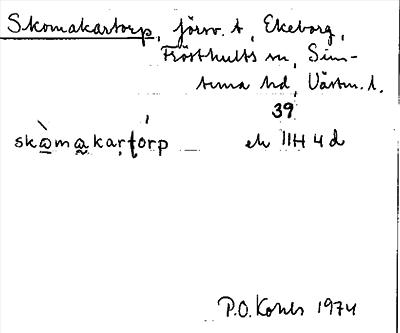 Skomakartorp, försv. t, Ekeborg,
Frösthults sn, Sim-
tuna hd, Västm. l.
39
skòmakarto̩rp ek 11H 4 d
P.O. Kohls 1974